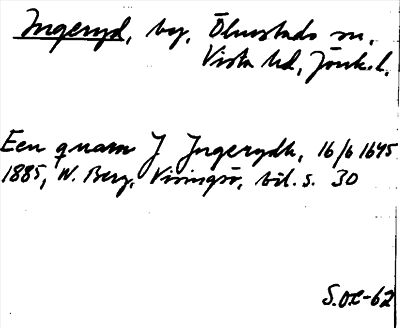 Ingeryd, by, Ölmstads sn,
Vista hd, Jönk.l.
Een quarn J Jngerydh, 16/6 1645
1885, W. Berg, Visingsö, bil. s. 30
S.OE-62